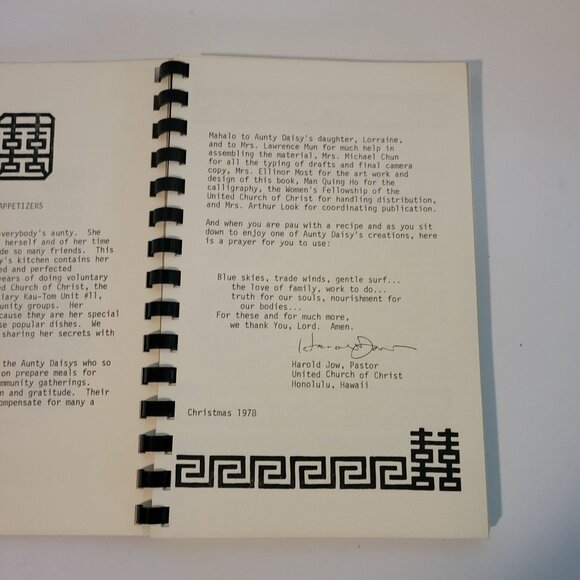 囍
APPETIZERS
everybody's aunty. She
herself and of her time
de so many friends. This
y's kitchen contains her
ed and perfected
years of doing voluntary
ed Church of Christ, the
iary Kau-Tom Unit #11,
unity groups. Her
cause they are her special
se popular dishes. We
sharing her secrets with
the Aunty Daisys who so
on prepare meals for
mmunity gatherings.
n and gratitude. Their
ompensate for many a
Mahalo to Aunty Daisy's daughter, Lorraine,
and to Mrs. Lawrence Mun for much help in
assembling the material, Mrs. Michael Chun
for all the typing of drafts and final camera
copy, Mrs. Ellinor Most for the art work and
design of this book, Man Quing Ho for the
calligraphy, the Women's Fellowship of the
United Church of Christ for handling distribution,
and Mrs. Arthur Look for coordinating publication.
And when you are pau with a recipe and as you sit
down to enjoy one of Aunty Daisy's creations, here
is a prayer for you to use:
Blue skies, trade winds, gentle surf...
the love of family, work to do...
truth for our souls, nourishment for
our bodies...
For these and for much more,
we thank You, Lord. Amen.
Harold Jow
Harold Jow, Pastor
United Church of Christ
Honolulu, Hawaii
Christmas 1978
囍